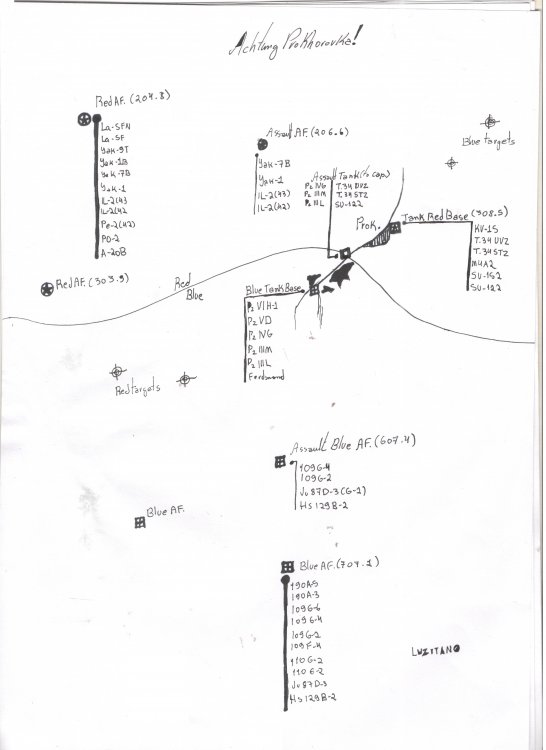 Achtung Prokhorovka!
Red AF. (204.8)
La-5FN
La-5F
Yak-9T
Yak-1B
Yak-7B
Yak-1
IL-2(43)
IL-2(42)
Pe-2(42)
PO-2
A-20B
Assault AF. (206.6)
Yak-7B
Yak-1
IL-2(43)
IL-2(42)
Blue targets
Assault Tank (to cap)
Pz IVG T.34 UVZ
Pz IIIM T.34 STZ
Pz IIIL SU-122
Prok.
Tank Red Base (308.5)
KV-1S
T.34 UVZ
T.34 STZ
M4A2
SU-152
SU-122
Red AF. (303.9)
Red
Blue
Blue Tank Base
Pz VIH-1
Pz VD
Pz IVG
Pz IIIM
Pz IIIL
Ferdinand
Red targets
Assault Blue AF. (607.4)
109G-4
109G-2
Ju87D-3(G-1)
HS129B-2
Blue AF.
Blue AF. (704.1)
190A-5
190A-3
109G-6
109G-4
109G-2
109F-4
110G-2
110E-2
Ju87D-3
Hs129B-2
LUZITANO